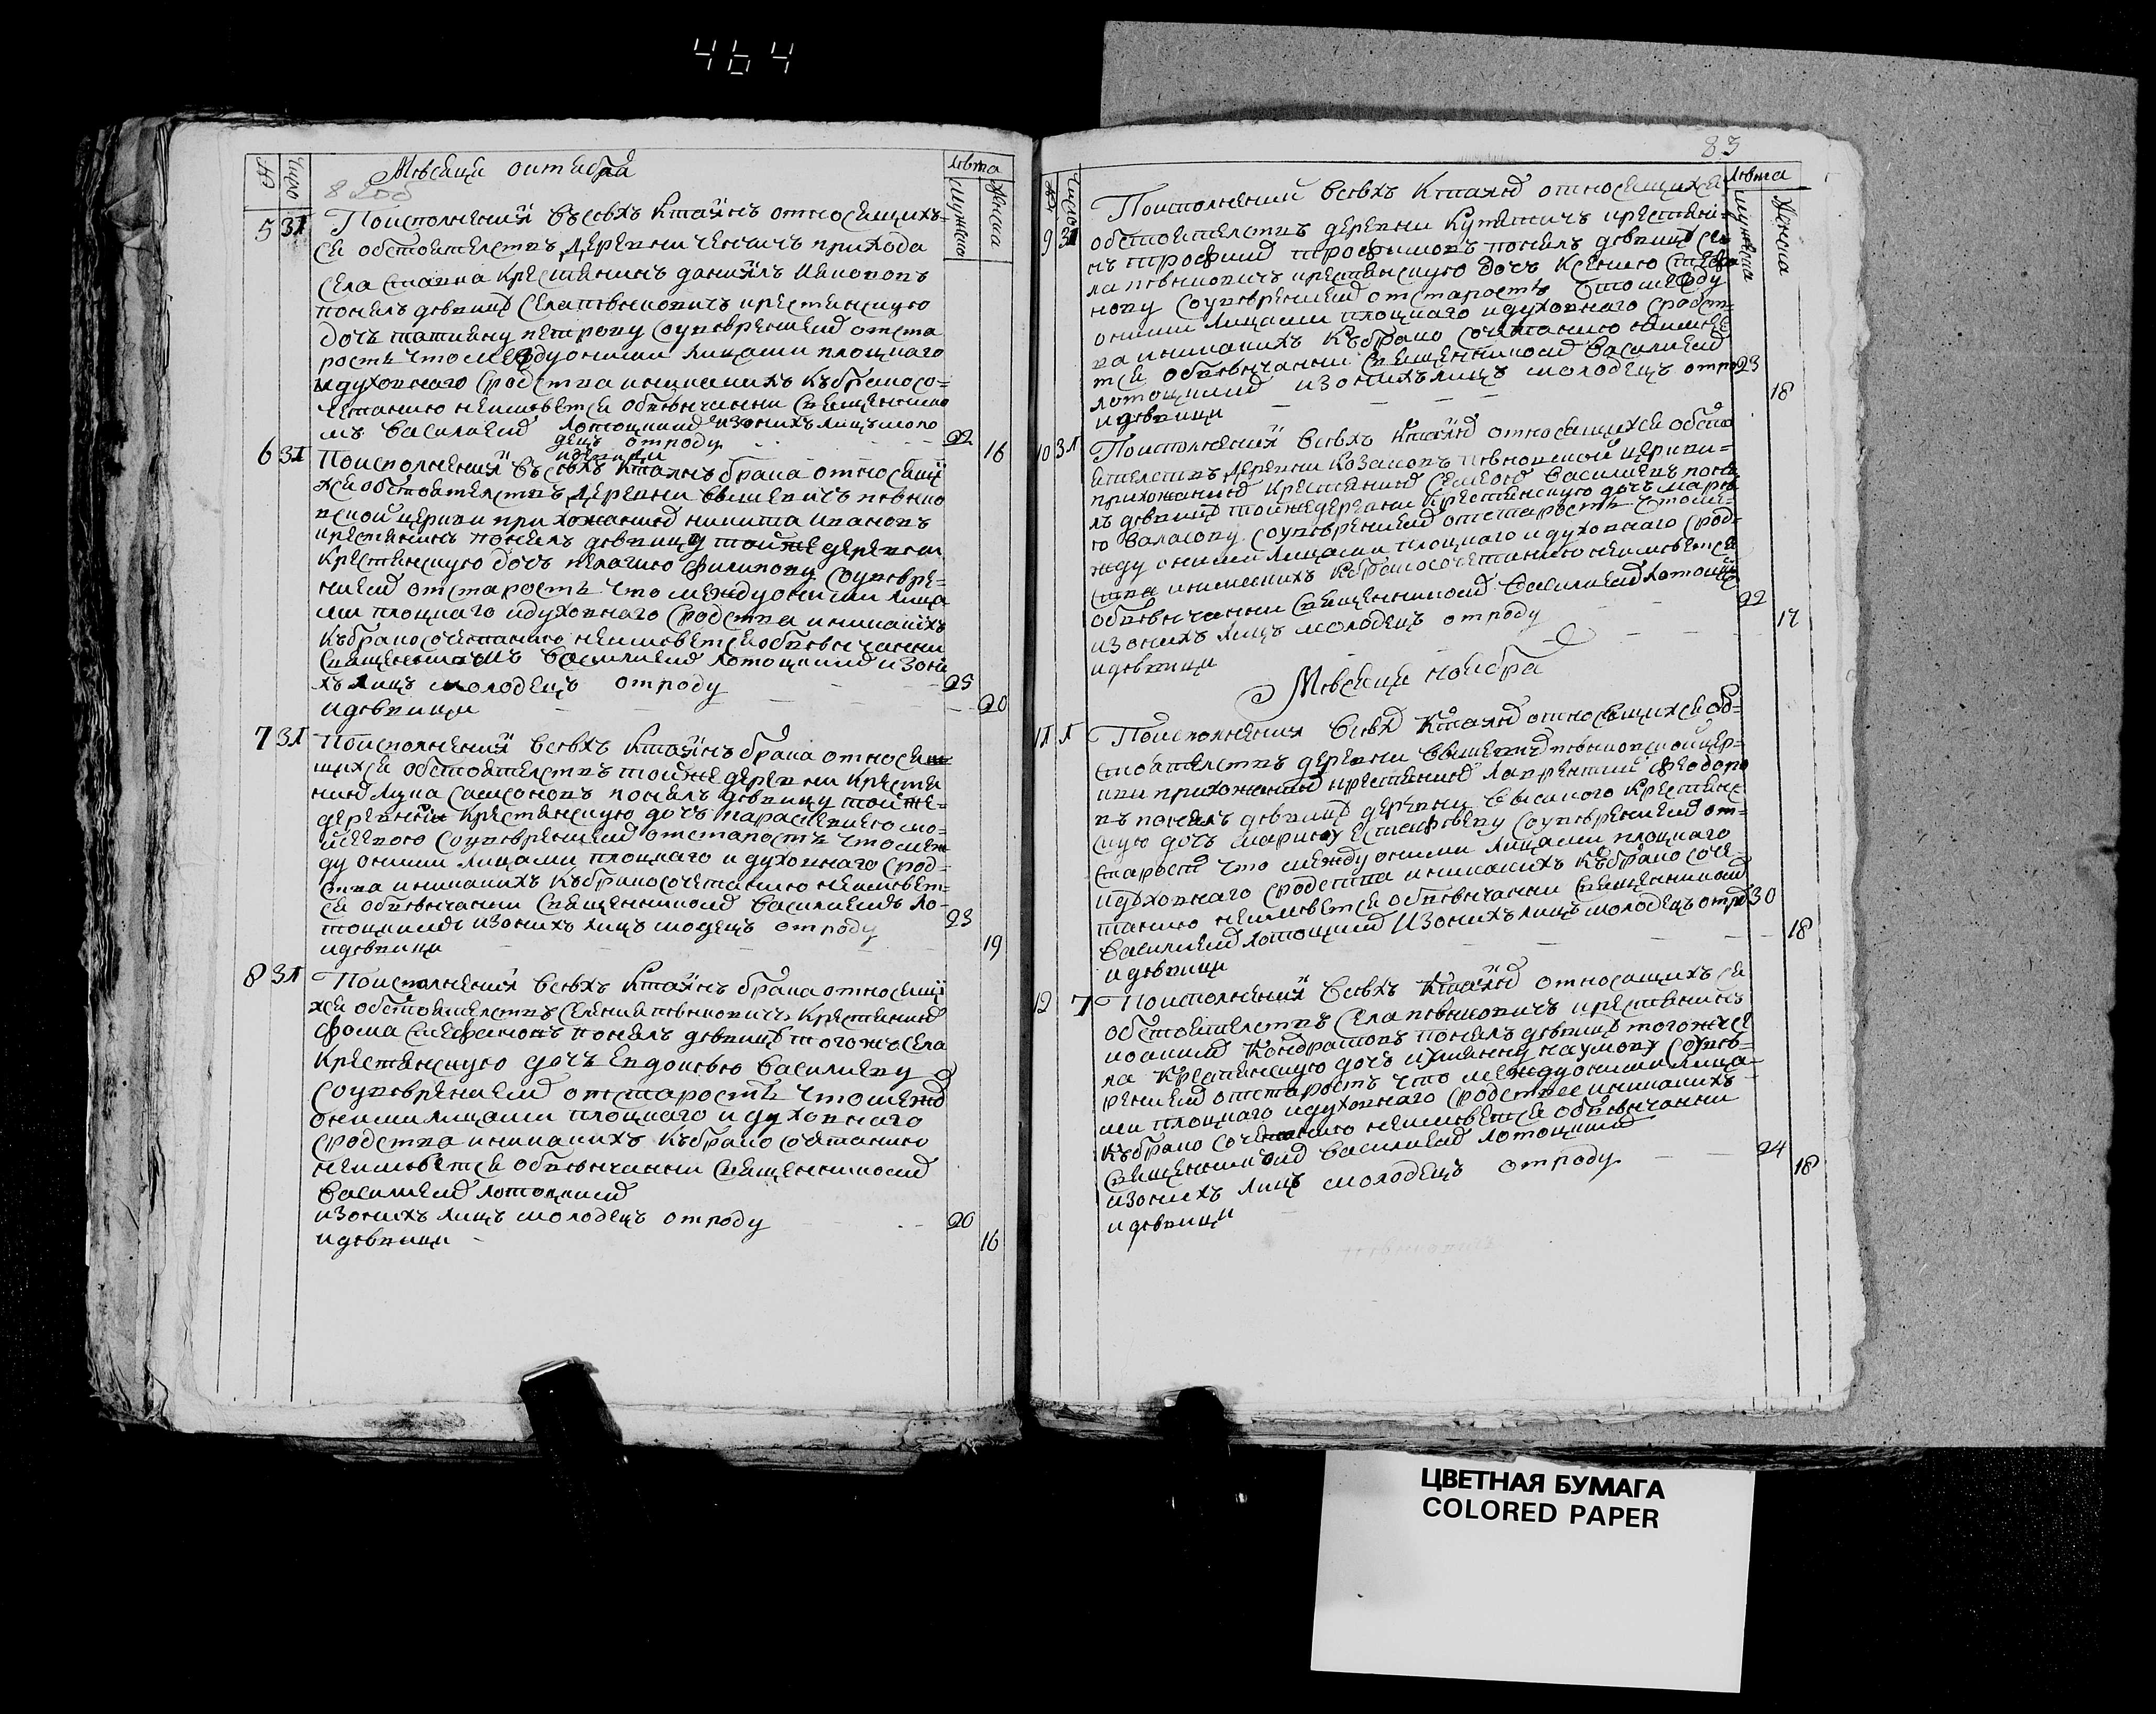 464
№
Число
Мѣсяцъ октября
лѣта
Мужеска
Женска
5 31 По исполнении всѣхъ к таинъ относящих
ся обстоятелствъ деревни прихода
села крестянинъ данїилъ ивановъ
понялъ дѣвицу села повноничь крестянскую
дочь татияну петрову соувѣрением отста
ростъ что между оними лицами плоцкаго
и духовнаго сродства и никакихъ къ брако со=
четанию неимѣется обвѣнчанни священнико
мъ василиемъ лотоцкимъ изонихъ лицъ моло
децъ отроду 22
и дѣвици 16
6 31 По исполнении всѣхъ к таинъ брака относящи
хся обстоятелствъ деревни вышевичъ повно
вской церкви прихожанинъ никита ивановъ
крестянинъ понялъ дѣвицу тойже деревни
крестянскую дочь пелагию филипову соувѣре=
нием отстаростъ что между оними лица
ми плоцкаго и духовнаго сродства и никакихъ
къ брако сочетанию неимѣется обвѣнчанни
священникомъ василиемъ лотоцкимъ изони
хъ лицъ молодецъ отроду 25
и дѣвици 20
7 31 По исполнении всѣхъ к таинъ брака относя
щихся обстоятелствъ тойже деревни крестя
нинъ лука самсоновъ понялъ дѣвицу тойже=
деревни крестянскую дочь параскевию мо=
йсееву соувѣрением отстаростъ что меж
ду оними лицами плоцкаго и духовнаго срод=
ства и никакихъ къ брако сочетанию неимѣет=
ся обвѣнчанни священником василиемъ ло=
тоцкимъ изонихъ лицъ модецъ отроду 23
и дѣвици 19
8 31 По исполнении всѣхъ к таинъ брака относящи
хся обстоятелствъ селения повноничь крестянинъ
фома стефановъ понялъ дѣвицу тогожъ села
крестянскую дочь евдокию василиеву
соувѣрением отстаростъ что между
оними лицами плоцкаго и духовнаго
сродства и никакихъ къ брако сочетанию
неимѣется обвѣнчанни священником
василием лотоцким
изонихъ лицъ молодецъ отроду 20
и дѣвици 16
83
№
Число
лѣта
Мужеска
Женска
По исполнении всѣхъ к таинъ относящихся
9 31 обстоятелствъ деревни крестяни=
нъ трофим трофимовъ понялъ дѣвицу се
ла повноничь крестянскую дочь ксению стефа
нову соувѣрением отстаростъ что между
оними лицами плоцкаго и духовнаго сродст=
ва и никакихъ къ брако сочетанию неимѣе
тся обвѣнчанни священником василием
лотоцким изонихъ лицъ молодецъ отро 23
и дѣвици 18
10 31 По исполнении всѣхъ к таинъ относящихся обсто
ятелствъ деревни козаковъ повновской церкви=
прихожанинъ крестянинъ василиевъ поня
лъ дѣвицу тойже деревни крестянскую дочь мари
ю соувѣрением отстаростъ что ме=
жду оними лицами плоцкаго и духовнаго срод=
ства и никакихъ к бракосочетанию неимѣется
обвѣнчанни священником василием лотоцким
изонихъ лицъ молодецъ отроду 22
и дѣвици 17
Мѣсяцъ ноября
11 1 По исполнения всѣх к таинъ относящихся об=
стоятелствъ деревни вышевичъ повновской цер=
кви прихожанинъ крестянинъ лаврентий феодоро
въ понялъ дѣвицу деревни высокого крестянс
кую дочь марину соувѣрением от=
старост что между оними лицами плоцкаго
и духовнаго сродства и никакихъ къ брако соче=
танию неимѣется обвѣнчанни священником
василием лотоцким изонихъ лицъ молодецъ отрод 30
и дѣвици 18
12 7 По исполнении всѣхъ к таинъ относящихъ ся
обстоятелствъ села повноничъ крестянинъ
иоаким кондратовъ понялъ дѣвицу тогожъ се
ла крестянскую дочь наумову соувѣ=
рением отстаростъ что между оними лица=
ми плоцкаго и духовнаго сродствее и никакихъ
къ брако сочетанию неимѣется обвѣнчанни
священником василием лотоцким
изонихъ лицъ молодецъ отроду 24
и дѣвици 18
ЦВЕТНАЯ БУМАГА
COLORED PAPER